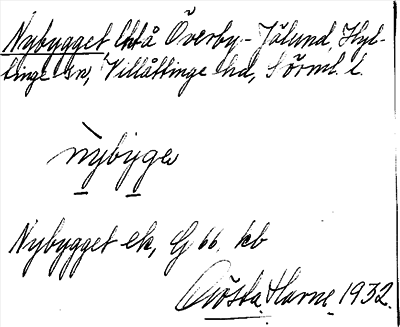 Nybygget, lht å Överby-Jälund, Hyl-
tinge sn, Villåttinge hd, Sörml. l.
nỳbyge
Nybygget ek, G 66. kb
Gösta Harne 1932.